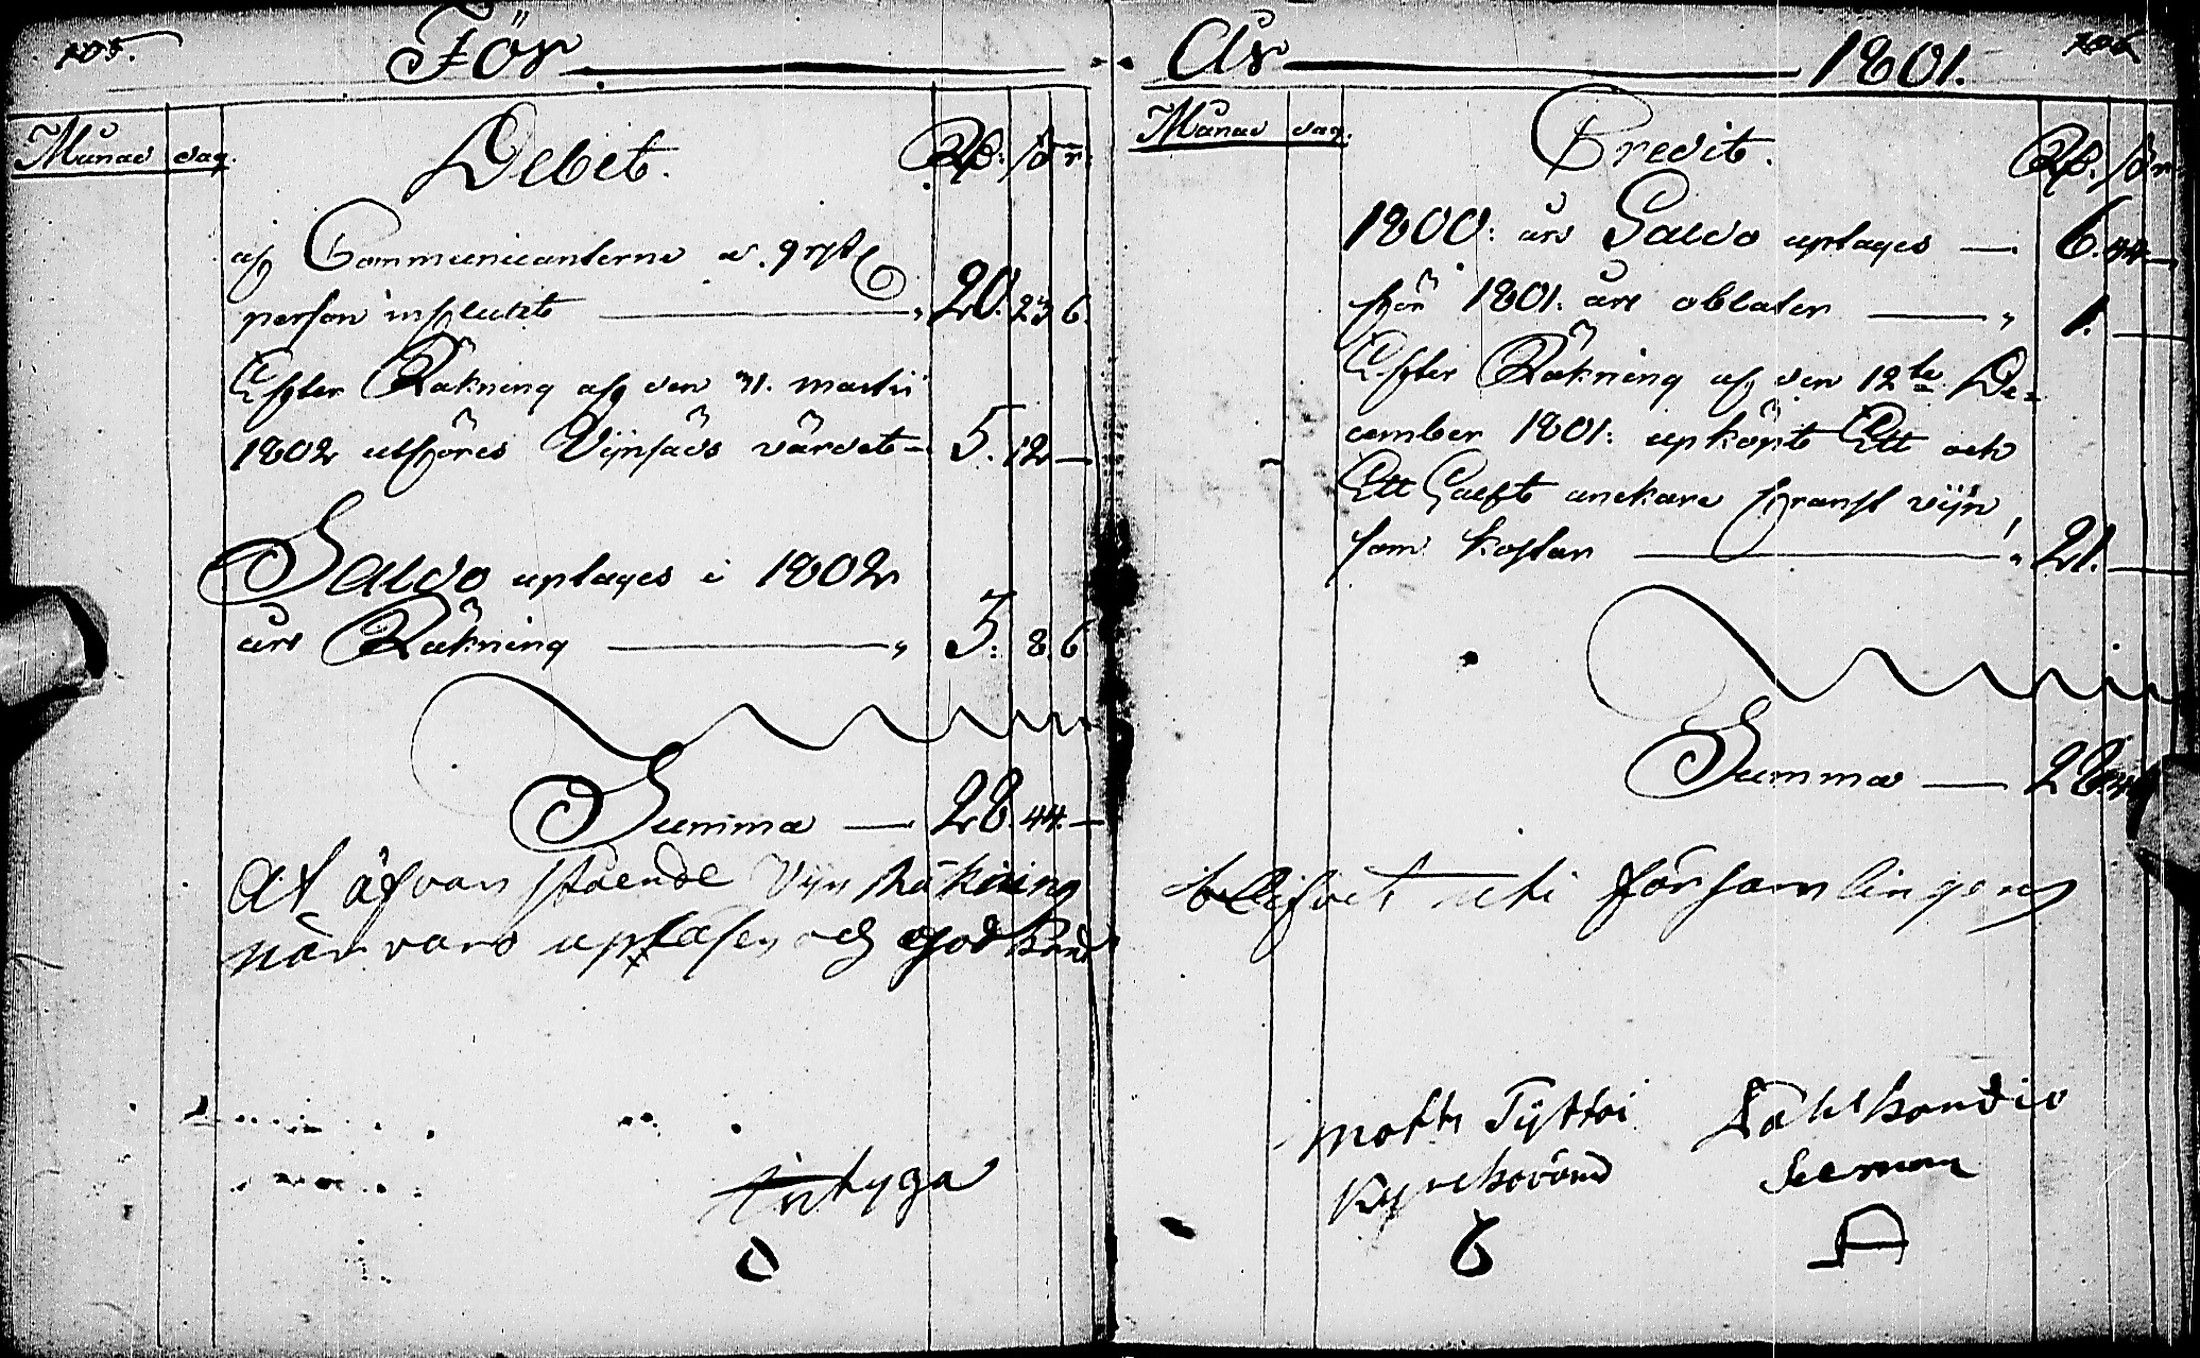 105.
För
Månad dag.
Debet.
Rd: ß r.
af Communicanterne a. 9 rst
person influtit 20. 23 6.
Efter Räkning af den 31. martii
1802 utföres Vijnsåds värdet 5. 12 —
Saldo uptages i 1802
års Räkning 3. 8. 6
Summa — 28. 44. —
At åfvan stående Vijn Räkning
når varo upläsen och godkänd
intyga
År 1801.
106
Månad dag.
Credit.
Rd. ß r
1800: års Saldo uptages — 6. 44 —
för 1801. års oblater 1. —
Efter Räkning af den 12te De=
cember 1801: upköpt Ett och
Ett halft anckare franst vijn,
som kostar 21. —
Summa — 28. 44
blifvet uti församlingen
Matts Tyttäi
Kyrckovärd